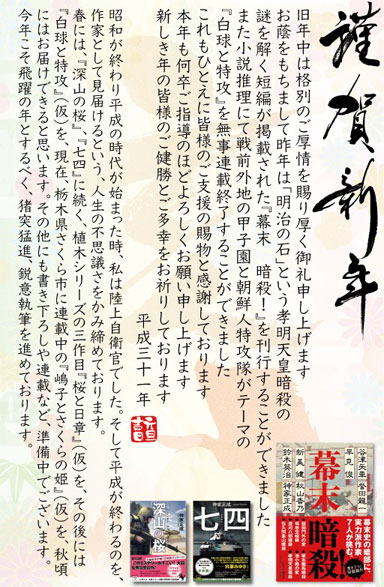 謹賀新年
旧年中は格別のご厚情を賜り厚く御礼申し上げます
お蔭をもちまして昨年は「明治の石」という孝明天皇暗殺の
謎を解く短編が掲載された『幕末 暗殺!』を刊行することができました
また小説推理にて戦前外地の甲子園と朝鮮人特攻隊がテーマの
『白球と特攻』を無事連載終了することができました
これもひとえに皆様のご支援の賜物と感謝しております
本年も何卒ご指導のほどよろしくお願い申し上げます
新しき年の皆様のご健勝とご多幸をお祈りしております
平成三十一年
昭和が終わり平成の時代が始まった時、私は陸上自衛官でした。そして平成が終わるのを、
作家として見届けるという、人生の不思議さをかみ締めております。
春には、『深山の桜』、『七四』に続く、植木シリーズの三作目『桜と日章』(仮)を、その後には
『白球と特攻』(仮)を、現在、栃木県さくら市に連載中の『嶋子とさくらの姫』(仮)を、秋頃
にはお届けできると思います。その他にも書き下ろしや連載など、準備中でございます。
今年こそ飛躍の年とするべく、猪突猛進、鋭意執筆を進めております。
深山の桜
神家正成
七四
神家正成
谷津矢車 誉田龍一
早見俊
新美健 秋山香乃
鈴木英治 神家正成
幕末
暗殺!
幕末史の暗部に、
実力派作家
7人が挑む。